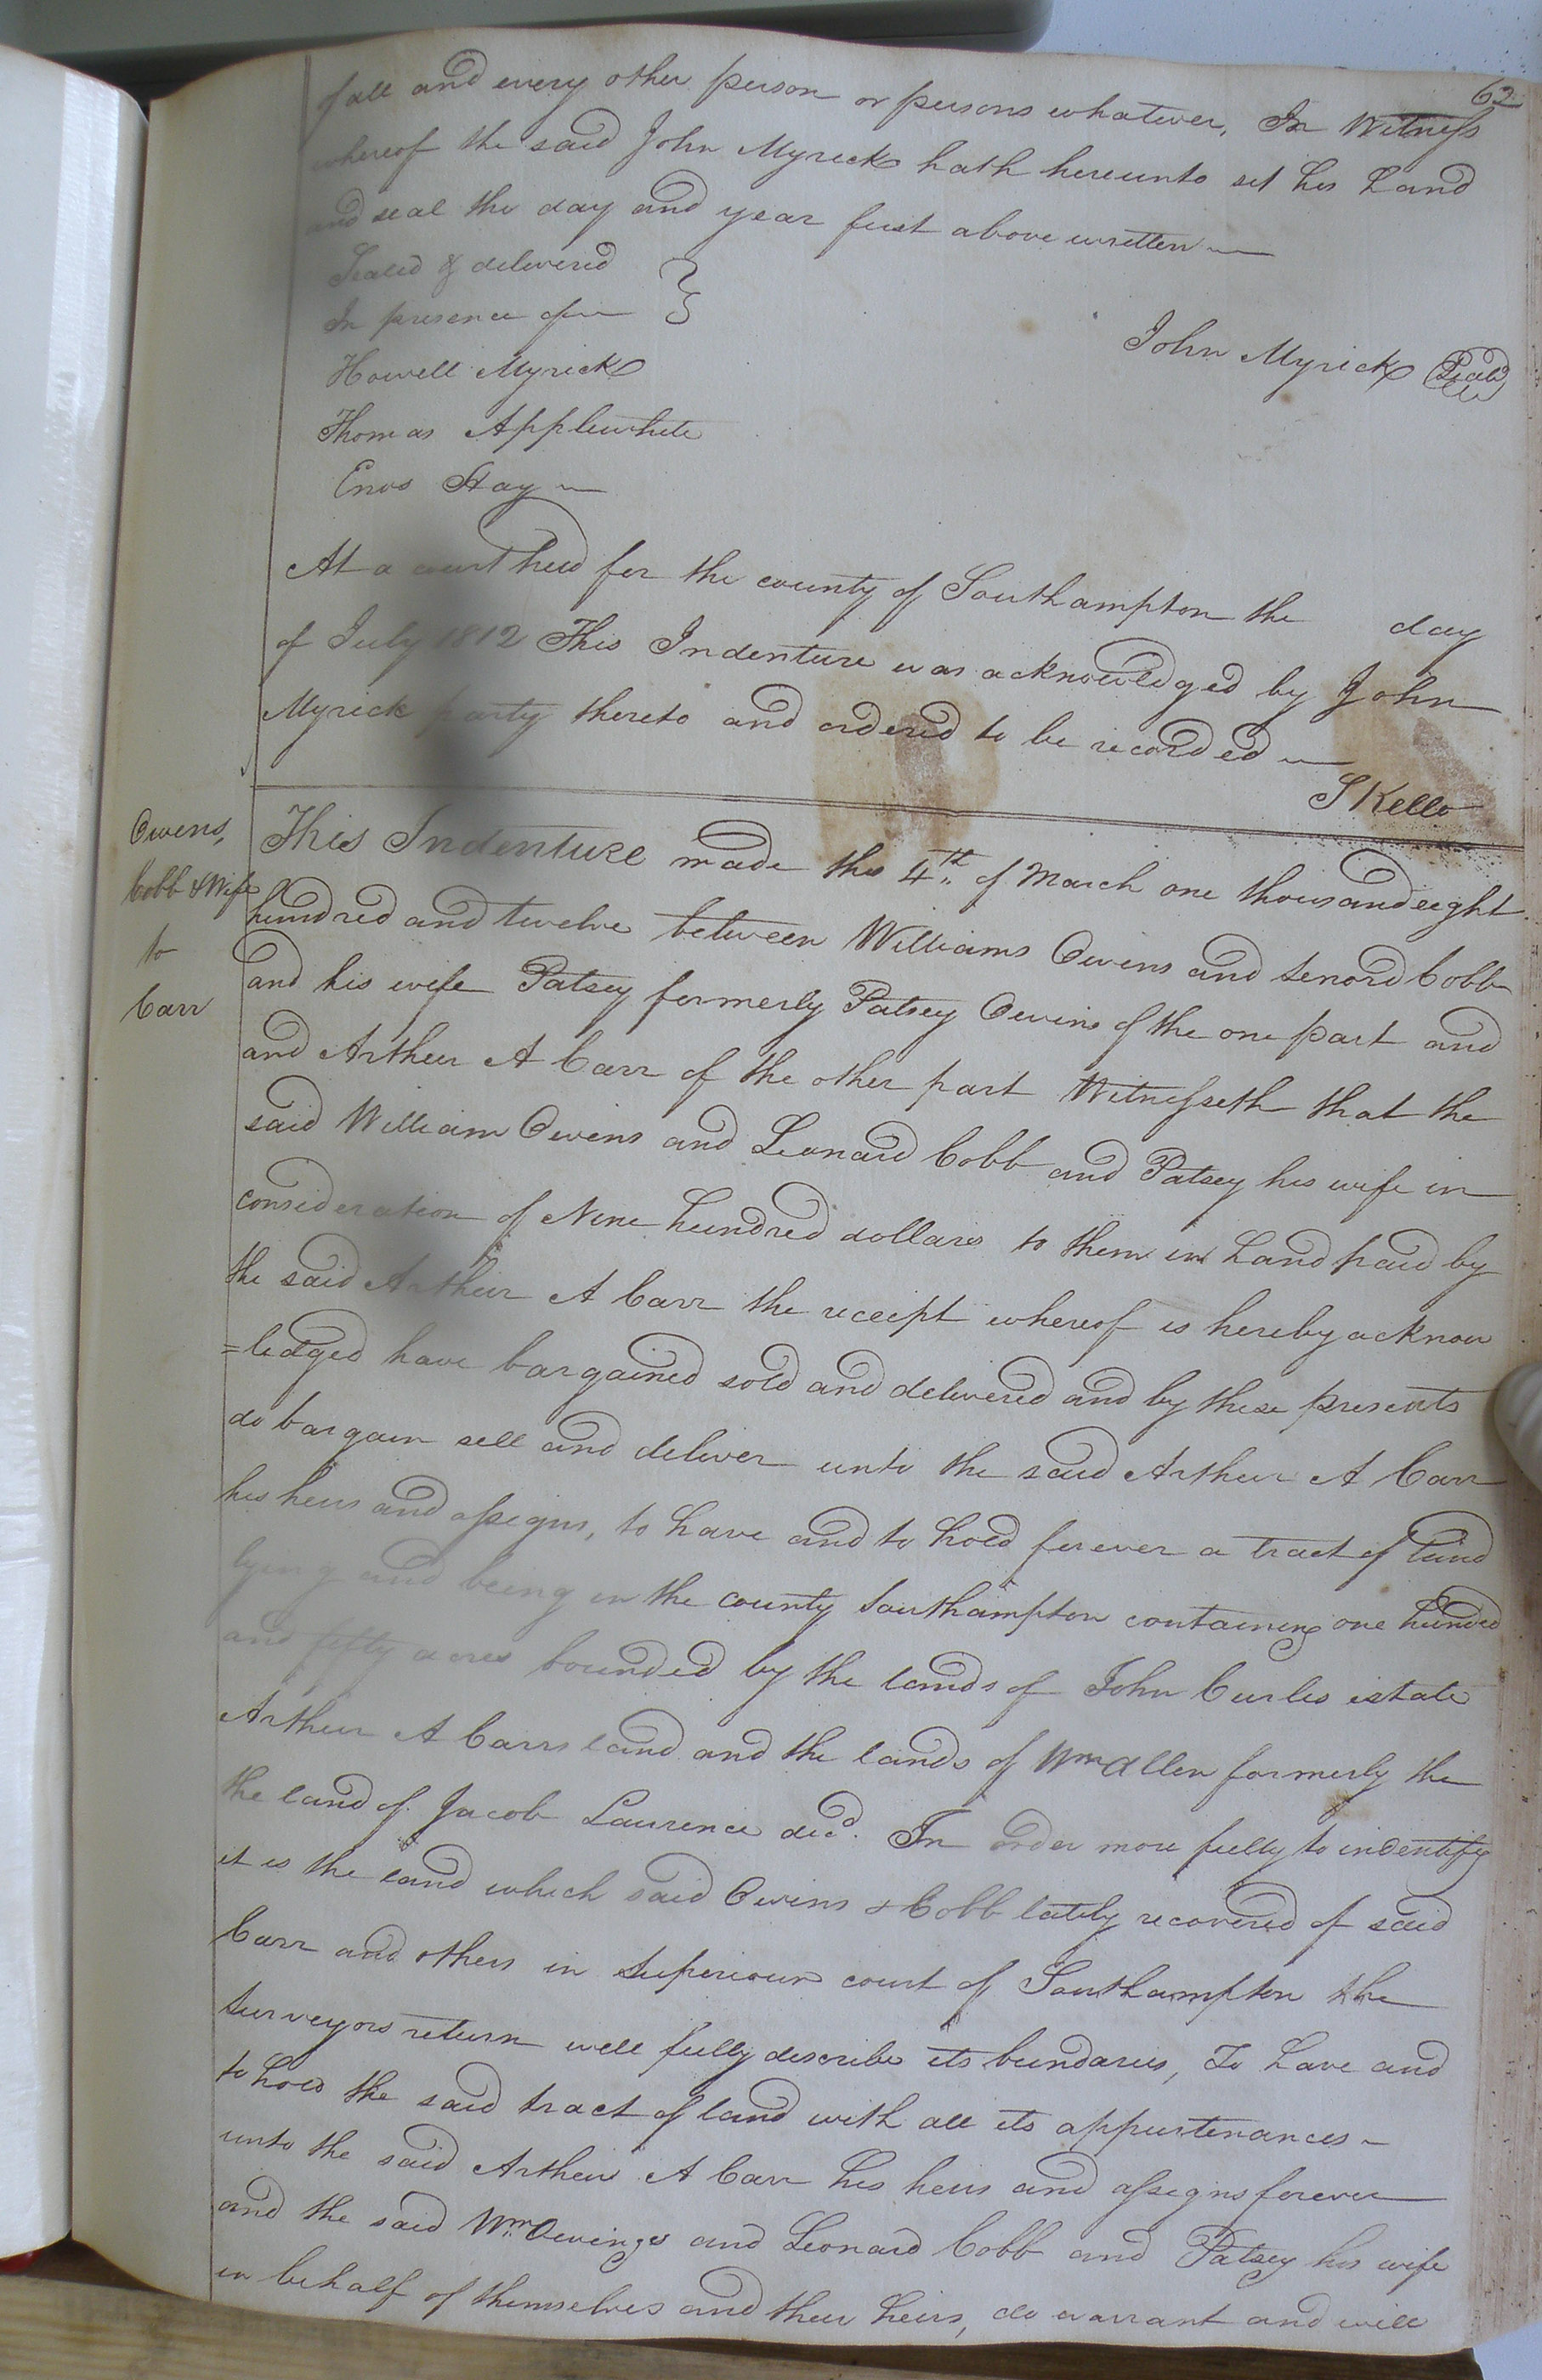 62
of all and every other person or persons whatever, In Witness
whereof the said John Myrick hath hereunto set his hand
and seal the day and year first above written
Sealed & delivered
In presence of
John Myrick Seal
Howell Myrick
Thomas Applewhite
Enos Hay
At a court held for the county of Southampton the day
of July 1812 This Indenture was acknowledged by John
Myrick party thereto and ordered to be recorded
S Kello
Owens,
Cobb & Wife
to
Carr
This Indenture made the 4th of March one thousand eight
hundred and twelve between Williams Owens and Lenord Cobb
and his wife Patsey formerly Patsey Owins of the one part and
and Arthur A Carr of the other part Witnesseth that the
said William Owins and Leonard Cobb and Patsey his wife in
consideration of Nine hundred dollars to them in hand paid by
the said Arthur A Carr the receipt whereof is hereby acknow
=ledged have bargained sold and delivered and by these presents
do bargain sell and deliver unto the said Arthur A Carr
his heirs and assigns, to have and to hold forever a tract of land
lying and being in the county Southampton containing one hundred
and fifty acres bounded by the lands of John Curles estate
Arthur A Carrs land and the lands of Wm Allen formerly the
the land of Jacob Laurence decd. In order more fully to indentify
it is the land which said Owins & Cobb lately recovered of said
Carr and others in Superiour court of Southampton the
surveyors return well fully describe its bundaries, To have and
to hold the said tract of land with all its appurtenances
unto the said Arthur A Carr his heirs and assigns forever
and the said Wm Owinges and Leonard Cobb and Patsey his wife
in behalf of themselves and their heirs, do warrant and will